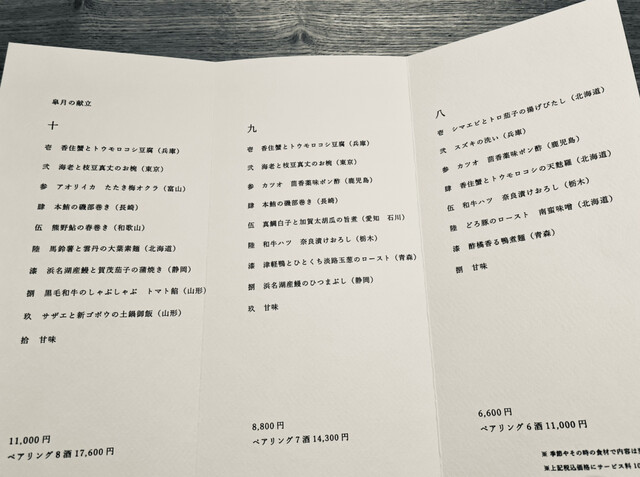 皐月の献立
十
壱 香住蟹とトウモロコシ豆腐（兵庫）
弐 海老と枝豆真丈のお椀（東京）
参 アオリイカ たたき梅オクラ（富山）
肆 本鮪の磯部巻き（長崎）
伍 熊野鮎の春巻き（和歌山）
陸 馬鈴薯と雲丹の大葉素麺（北海道）
漆 浜名湖産鰻と賀茂茄子の蒲焼き（静岡）
捌 黒毛和牛のしゃぶしゃぶ トマト餡（山形）
玖 サザエと新ゴボウの土鍋御飯（山形）
拾 甘味
11,000円
ペアリング8酒 17,600円
九
壱 香住蟹とトウモロコシ豆腐（兵庫）
弐 海老と枝豆真丈のお椀（東京）
参 カツオ 茴香薬味ポン酢（鹿児島）
肆 本鮪の磯部巻き（長崎）
伍 真鯛白子と加賀太胡瓜の旨煮（愛知 石川）
陸 和牛ハツ 奈良漬けおろし（栃木）
漆 津軽鴨とひとくち淡路玉葱のロースト（青森）
捌 浜名湖産鰻のひつまぶし（静岡）
玖 甘味
8,800円
ペアリング7酒 14,300円
八
壱 シマエビとトロ茄子の揚げびたし（北海道）
弐 スズキの洗い（兵庫）
参 カツオ 茴香薬味ポン酢（鹿児島）
肆 香住蟹とトウモロコシの天麩羅（北海道）
伍 和牛ハツ 奈良漬けおろし（栃木）
陸 どろ豚のロースト 南蛮味噌（北海道）
漆 酢橘香る鴨煮麺（青森）
捌 甘味
6,600円
ペアリング6酒 11,000円
※季節やその時の食材で内容は
※上記税込価格にサービス料10